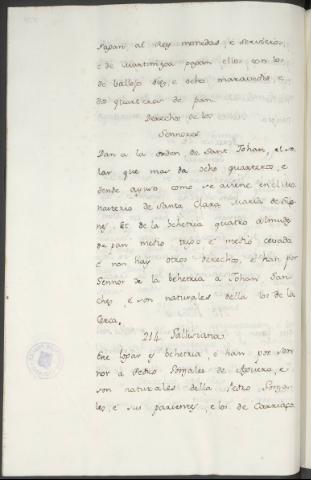 Papan, al Rey monedas, e servicios,
e de Martiniega pagan ellos con los
de Vallejo diez, e ocho maravedis, e
dos quarteros de pan.
Derechos de los
Sennores
Dan a la orden de Sant Johan, el so
lar que mas da ocho quarteros, e
dende ayuso como se aviene en el Mo
nasterio de Santa Clara
Et de la behetria quatro almudes
de pan medio trigo e medio cevada
e non hay otros derechos, e han por
Sennor de la behetria a Johan San
chez, e son naturales della los de la
Cerca.
214
Este logar es behetria, e han por Sen
nor a Pedro Gonzales de Aguero, e
son naturales della Pedro Gonza
les, e sus parientes, e los de Carriazo